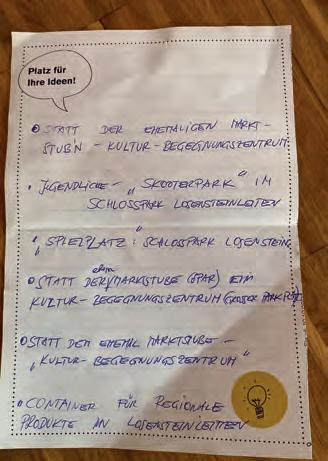 Platz für
Ihre Ideen!
• STATT DER EHEMALIGEN MARKT-
STUB'N - KULTUR-BEGEGNUNGSZENTRUM
• JUGENDLICHE - „SKOOTERPARK" IM
SCHLOSSPARK LOSENSTEINLEITEN
• „SPIELPLATZ": SCHLOSSPARK LOSENSTEINL
• STATT DER ehem MARKTSTUBE (SPAR) EIN
KULTUR-BEGEGNUNGSZENTRUM (GROSSER PARKPLATZ)
• STATT DER EHEMAL MARKTSTUBE -
„KULTUR-BEGEGNUNGSZENTRUM"
• CONTAINER FÜR REGIONALE
PRODUKTE IN LOSENSTEINLEITEN